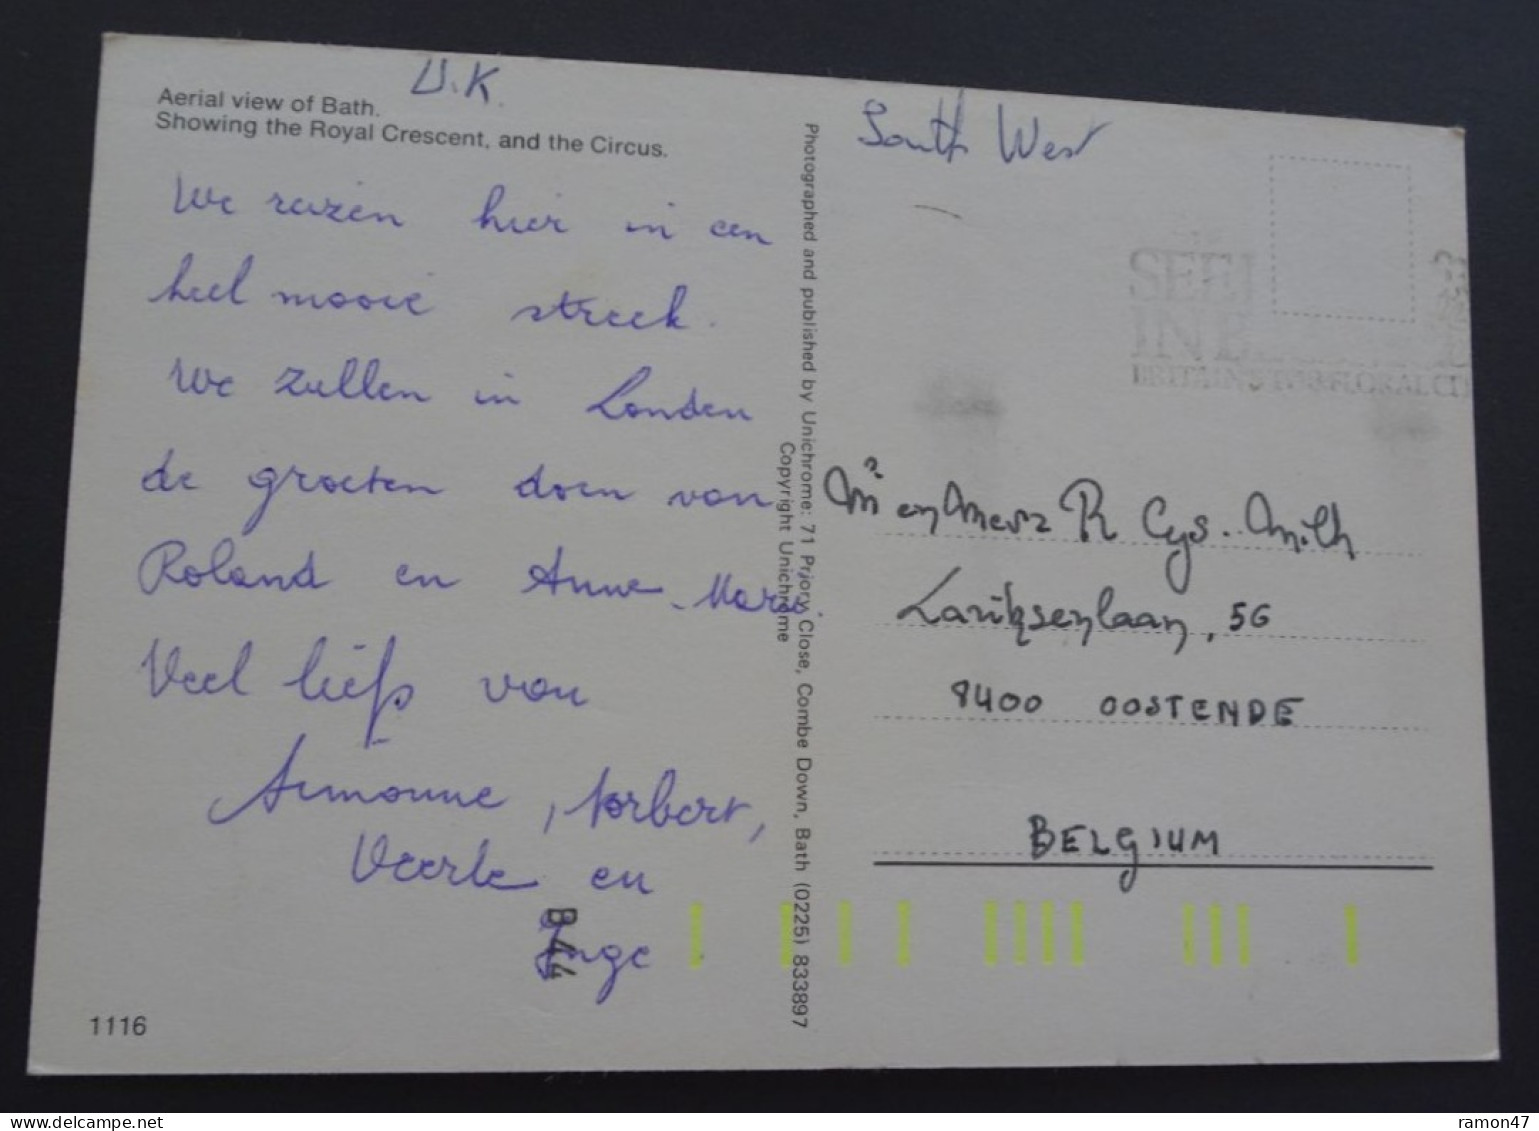 U.K.
Aerial view of Bath.
Showing the Royal Crescent, and the Circus.
We reizen hier in een
heel mooie streek.
We zullen in Londen
de groeten doen van
Roland en Anne-Marie.
Veel liefs van
Armonne, Norbert,
Veerle en
Inge
B44
1116
Photographed and published by Unichrome: 71 Priory Close, Combe Down, Bath (0225) 833897
Copyright Unichrome
South West
SEE
IN
BRITAIN'S TOP FLORAL CIT
Mr en Mevr R Cys-Mich
Lariksenlaan, 56
8400 OOSTENDE
BELGIUM
delcampe.net
ramon47